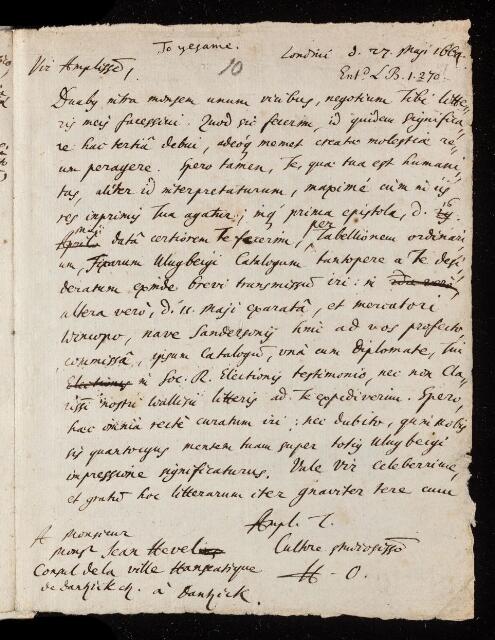 To yesame.
Londini d. 27. Maji 1664
10
Vir Amplissē,
Entd L.B. 1. 270.
Duaby intra mensem unum vicibus, negotium Tibi litte-
ris meis facessivi. Quod sic fecerim, id quidem significa-
re hac tertiâ debui, adeóq memet creatae molestiae re-
um peragere. Spero tamen, Te, qua tua est humani-
tas, aliter id interpretaturum, maximè cùm in iis
res inprimis Tua agatur; inq prima epistola, d.
Aprilis maji datâ certiorem te fecerim, per Tabellionem ordinari-
um, Fixarum Ulugbeigi Catalogum tantopere a Te desi-
deratum brevi transmissū iri: in
altera verò, d. 11. Maji exaratâ, et mercatori
nave Sandersonij hinc ad vos profecto
commissâ, ipsum Catalogū, unâ cum diplomate, tui
Electionis in Soc. R. Electionis testimonio, nec non Cla-
rissi nostri Wallisij litteris ad te expediverim. Spero,
haec omnia rectè curatum iri; nec dubito, quin nobis
sis quantocyus mentem tuam super totiq Ulugbeigi
impressione significaturus. Vale Vir celeberrime,
et gratū hoc litterarum iter gnaviter tere cum
Ampl. T.
Cultore studiosissō
H-O.
A Monsieur
Mons.r Jean Hevelius
Consul de la ville Hanseatique
de Danzick
à Danzick.